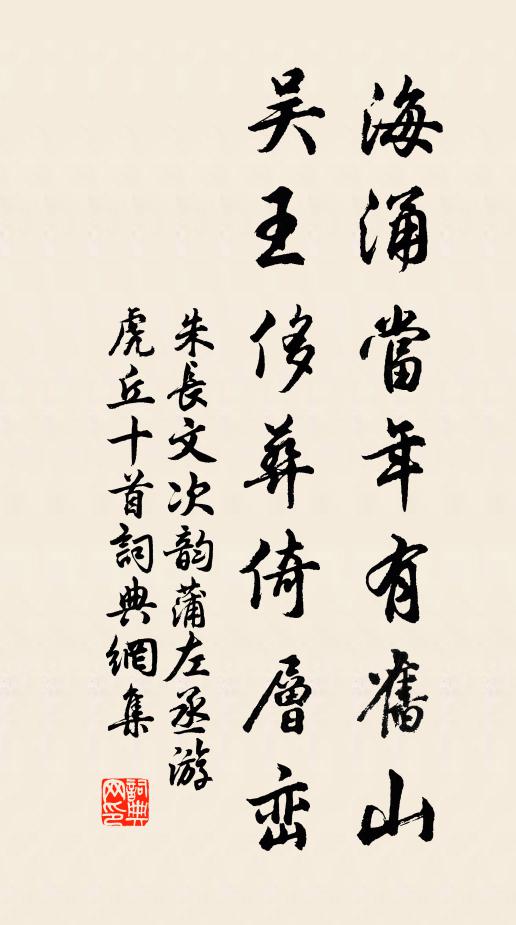 海涌當年有舊山
吴王侈葬倚層峦
朱長文次韵蒲左丞游
虎丘十首詞典網集
詞典网印